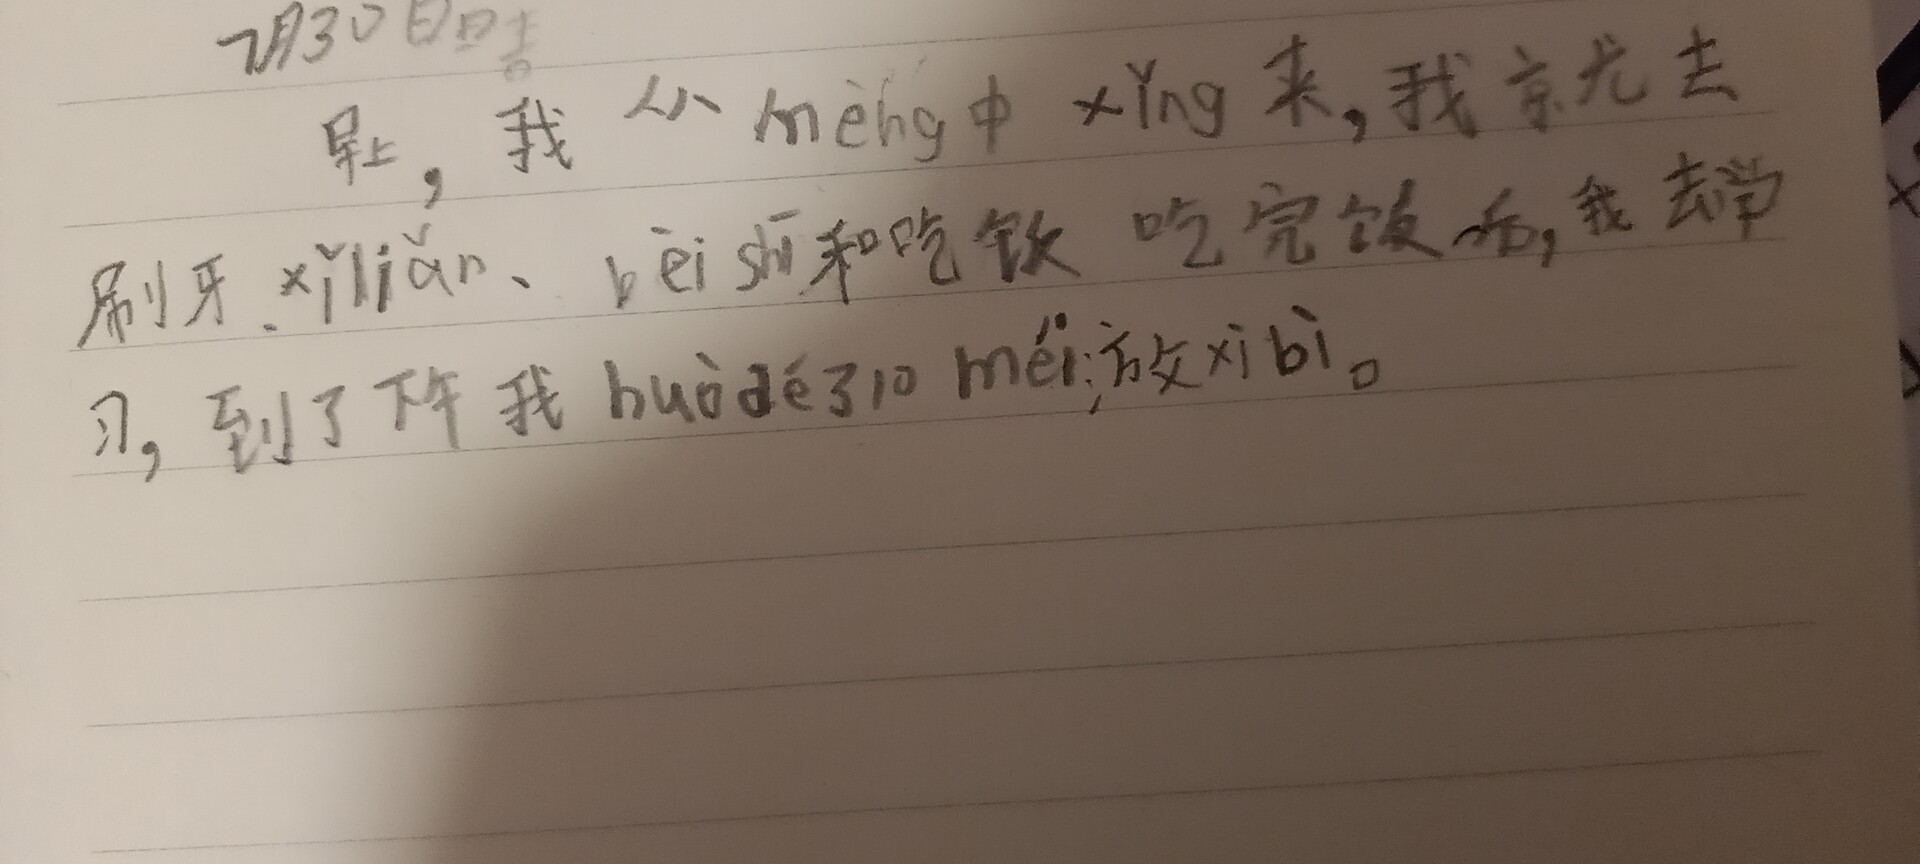 7月30日晴
早上，我从mèng中xǐng来，我就去
刷牙、xǐliǎn、bèi shī和吃饭 吃完饭后，我去学
习，到了下午我huòdé310méi放xì bì。